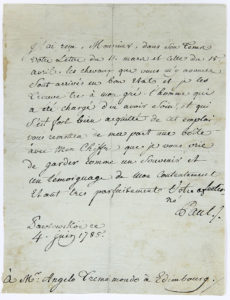 J'ai reçu, Monsieur, dans son tems
votre Lettre du 11. mars et celle du 15.
avril. les chevaux que vous m'
sont arrivés en bon état et je les
trouve très à mon gré. l'homme qui
a été chargé d'en avoir soin, et qui
s'est fort bien acquitté de cet emploi
vous remettra de ma part une boëte
avec mon Chiffre que je vous prie
de garder comme un Souvenir et
un témoignage de mon Contentement
Etant très parfaitement Votre affection
né
Paul
Pawlowskoe ce
4. Juin 1785.
à Mr. Angelo Tremamondo à Edimbourg.